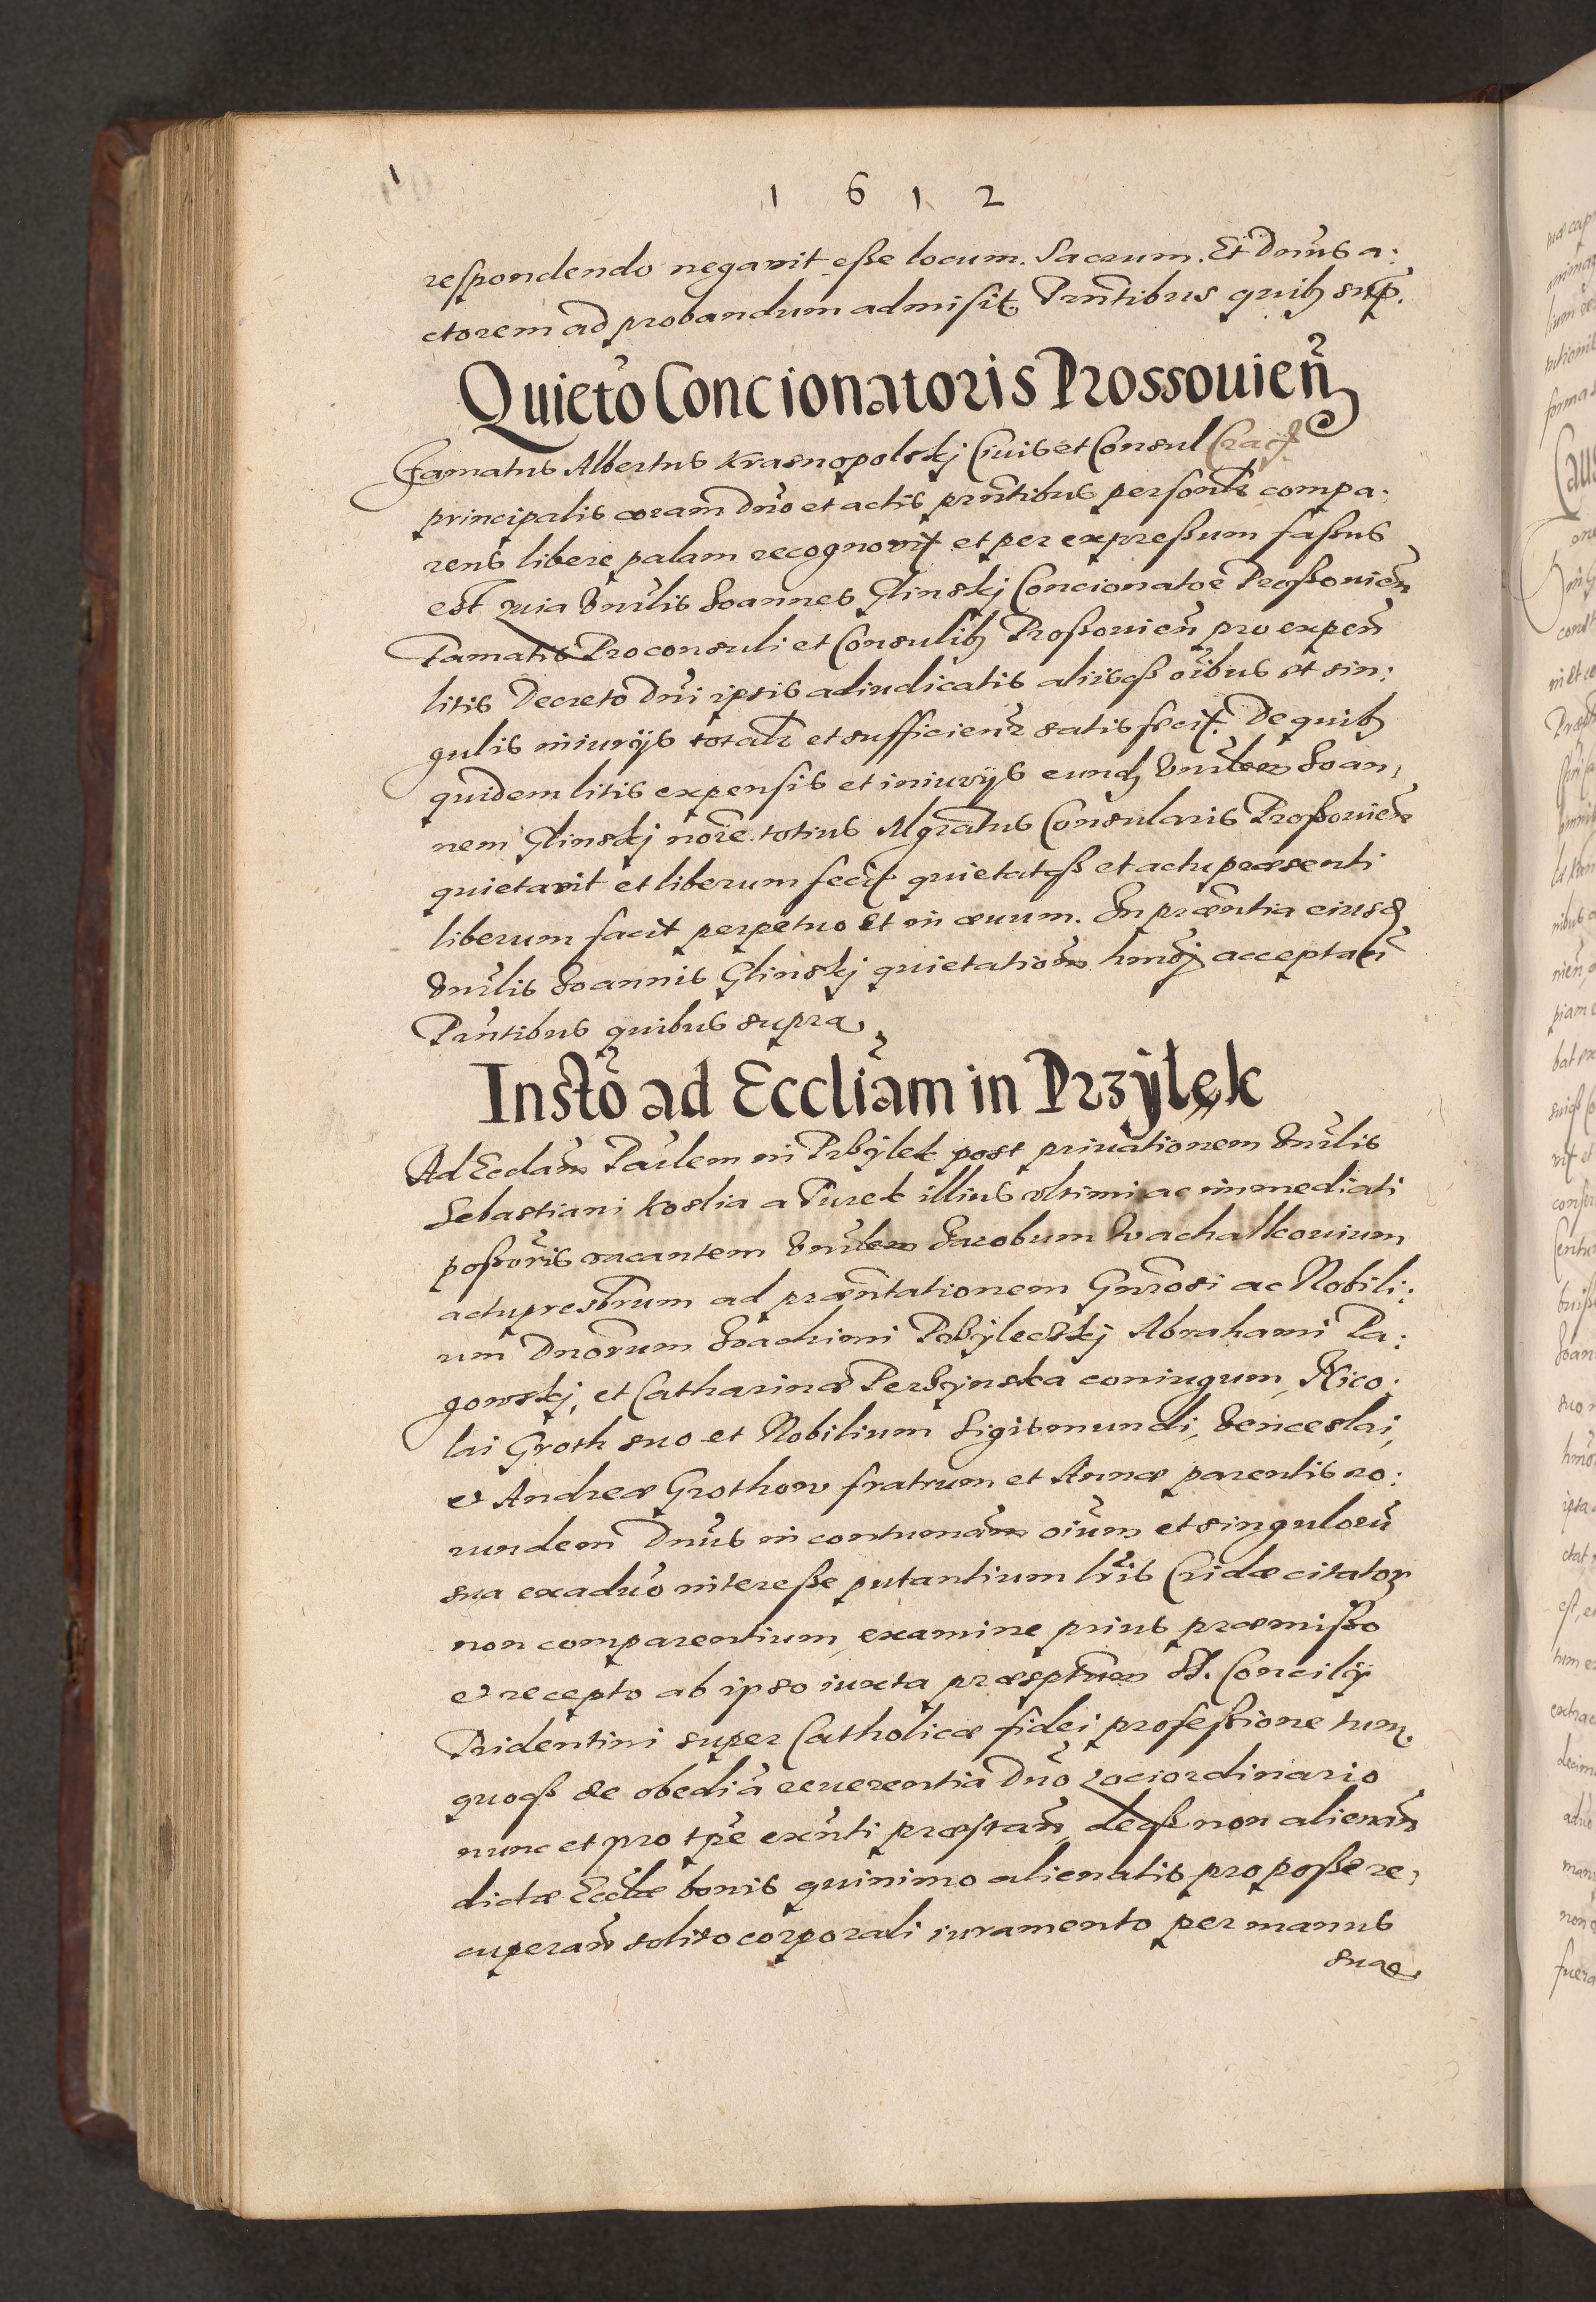 1612
respondendo negavit esse locum Sacrum. Et Dnus a:
ctorem ad probandum admisit. Prntibus quib sup.
Quieto Concionatoris Prossouien
Famatus Albertus Krasnopolskj Ciuis et Consul
principalis coram Dno et actis prntibus personlr compa:
rens libere palam recognovit et per expressum fassus
est quia Vnrlis Joannes Glinskj Concionator Prossouien
Famatis Proconsuli et Consulib Prossouien pro expen
litis Decreto Dni ipsis adiudicatis aliisq oibus et sin:
gulis iniurijs totalr et sufficienr satisfecit. De quib
quidem litis expensis et iniurijs eund Vnrlem Joan,
nem Glinskj noie totius Mgratus Consularis Prossouien
quietavit et liberum fecit quietatq et actu praesenti
liberum facit perpetuo et in aeuum. In praentia eiusd
Vnrlis Joannis Glinskj quietationem hmoj acceptan
Prntibus quibus supra.
Insto ad Eccliam in Przÿlęk
Ad Eccliam Parlem in Przÿlek post priuationem Vnrlis
Sebastiani Koslia a Turek illius vltimi ac immediati
possoris vacantem Vnrlem Jacobum Wachalkouium
actupresbrum ad praentationem Gnrosi ac Nobili:
um Dnorum Joachimi Przÿlecskj Abrahami Pa:
gowskj, et Catharinae Perzÿnska coniugum, Nico:
lai Groth suo et Nobilium Sigismundi, Venceslai,
et Andreae Grothow fratrum et Annae parentis eo:
rundem Dnus in contumam oium et singuloru
sua exaduo interesse putantium lris Cridae citator
non comparentium, examine prius praemisso
et recepto ab ipso iuxta praesptum St. Concilÿ
Tridentini super Catholicae fidei professione tum
quoq de obedia reuerentia Dno Lociordinario
nunc et pro tpe exnti praestan, deq non alienan
dictae Eccliae bonis quinimo alienatis pro posse re,
cuperan solito corporali iuramento per manus
suas